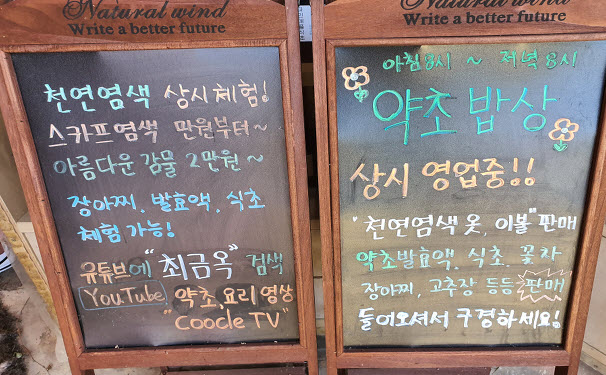 Natural wind
Write a better future
천연염색 상시체험!
스카프염색 만원부터~
아름다운 감물 2만원~
장아찌. 발효액. 식초
체험 가능!
유튜브에 "최금옥" 검색
YouTube 약초, 요리 영상
"Coocle TV"
Natural wind
Write a better future
아침 8시 ~ 저녁 8시
약초 밥상
상시 영업중!!
"천연염색 옷, 이불" 판매
약초발효액. 식초. 꽃차
장아찌, 고추장 등등 판매
들어오셔서 구경하세요!